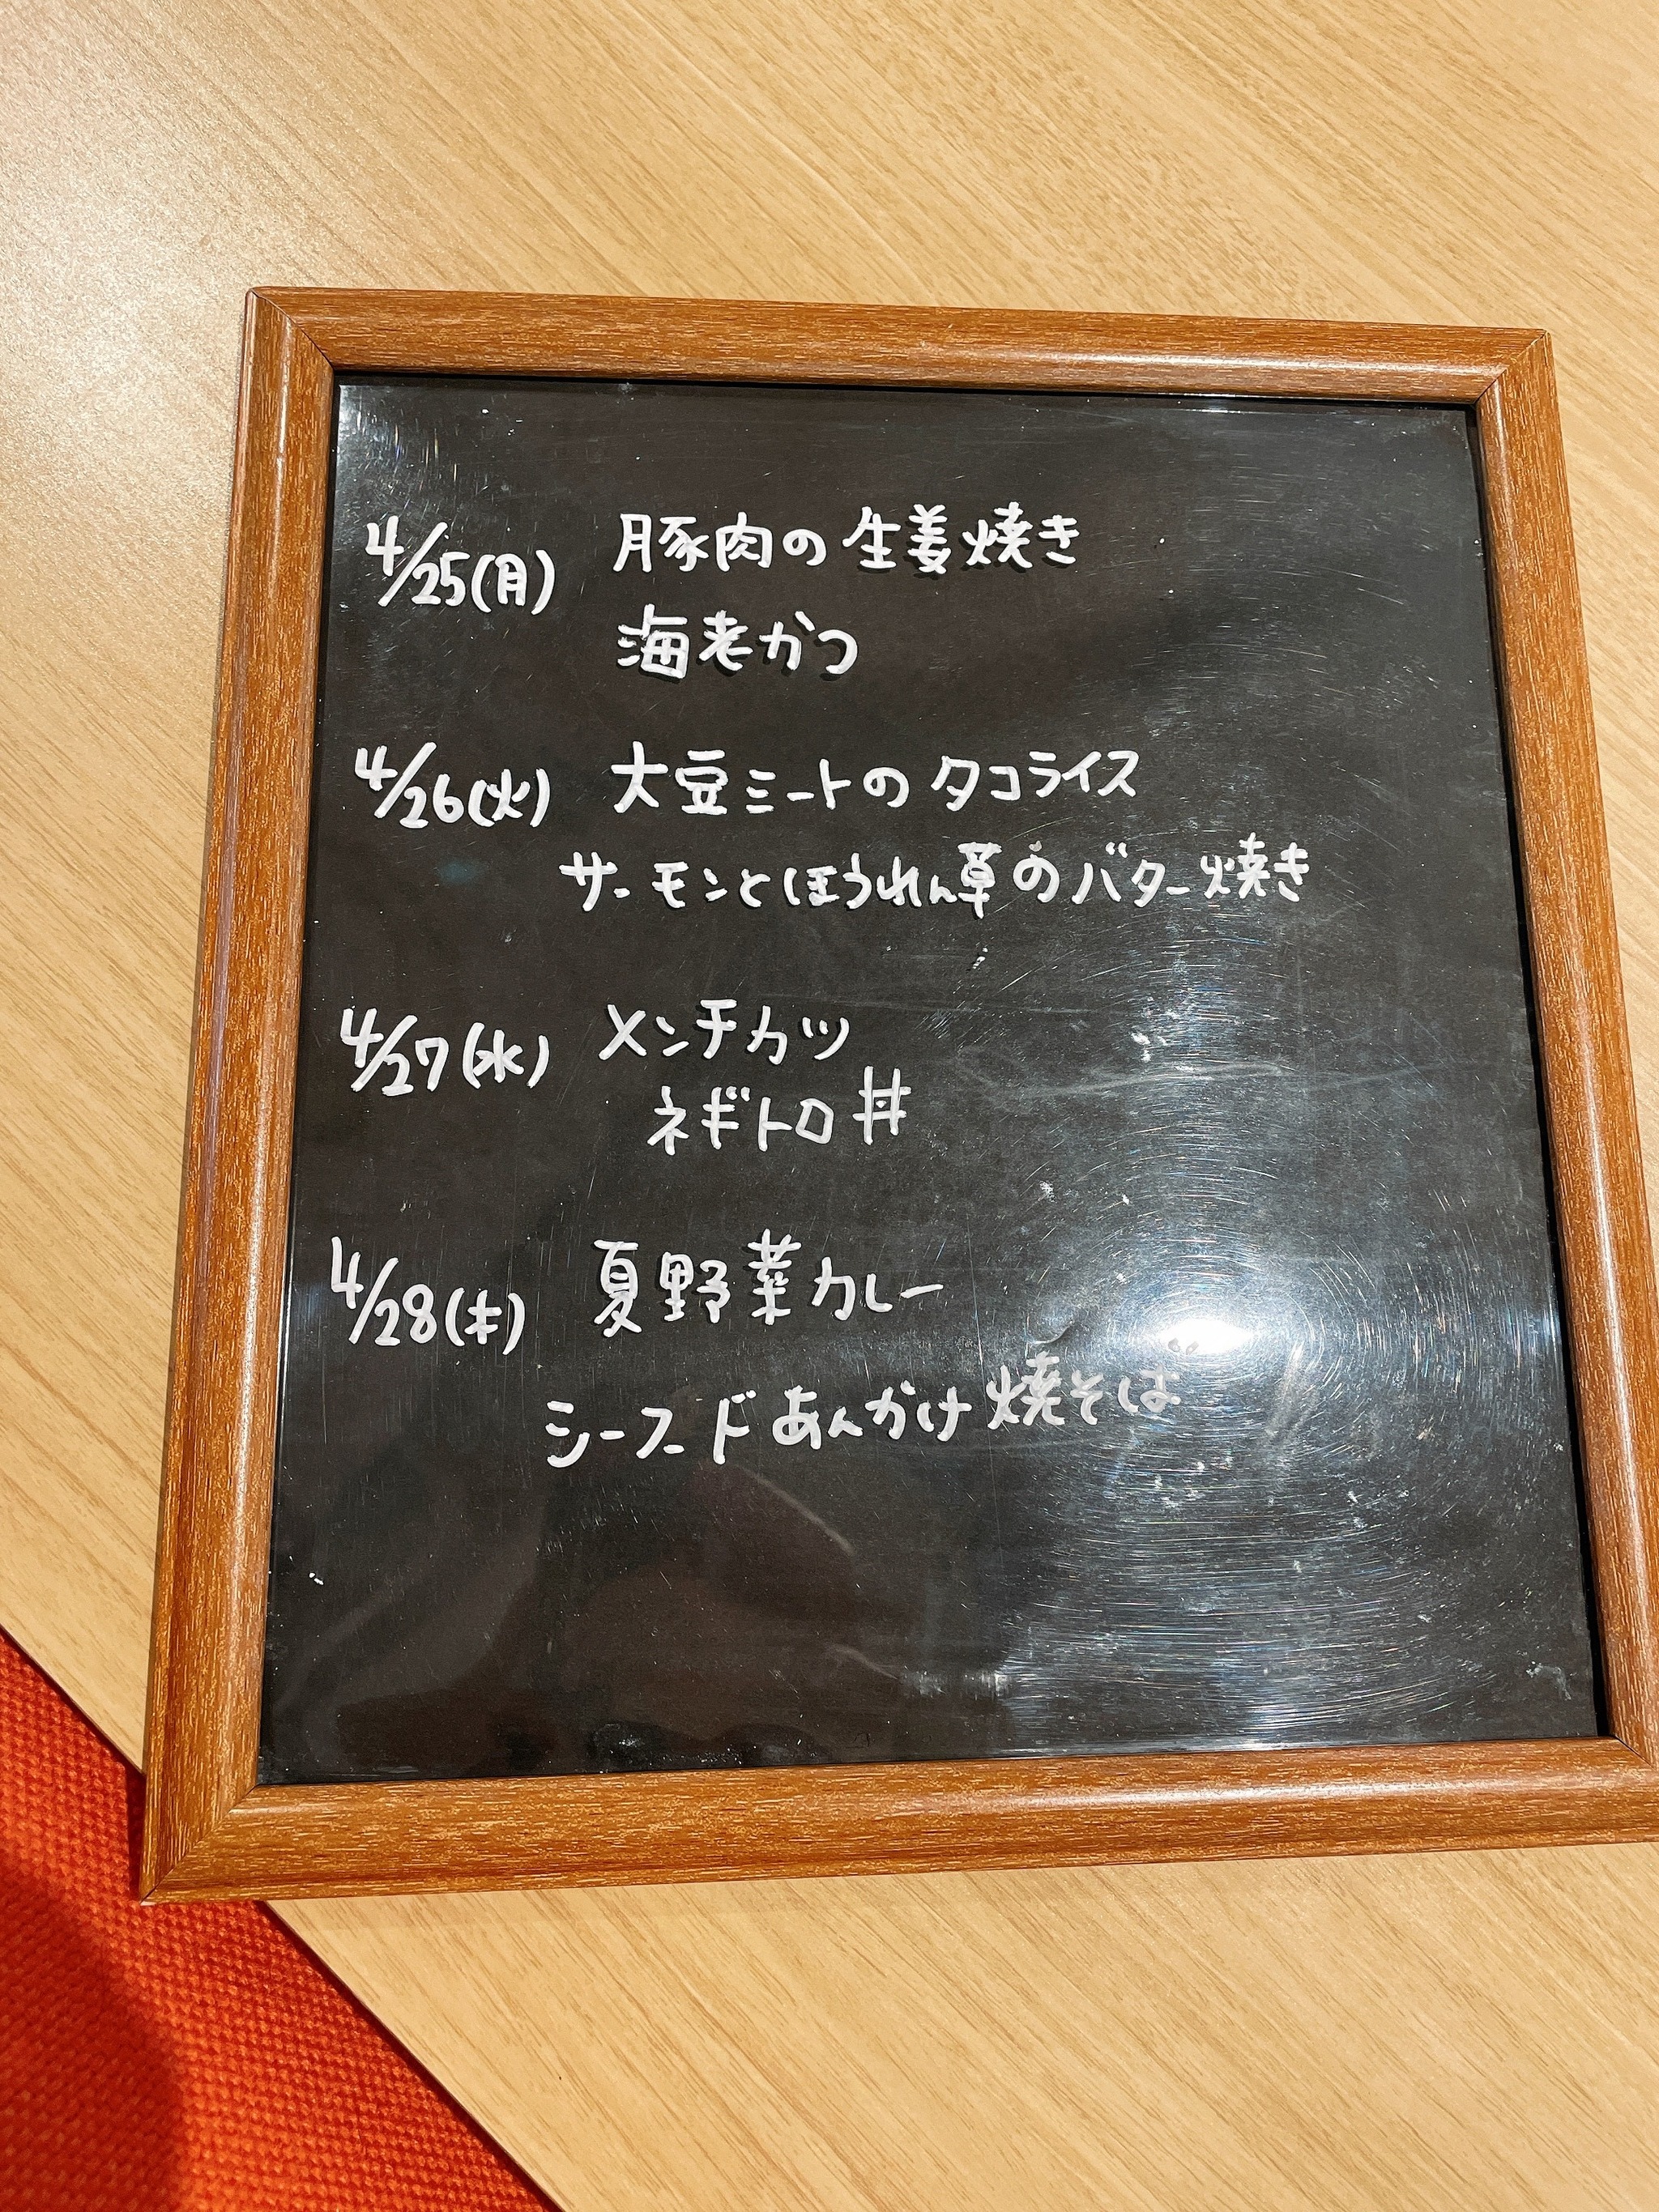 4/25(月) 豚肉の生姜焼き
海老かつ
4/26(火) 大豆ミートのタコライス
サーモンとほうれん草のバター焼き
4/27(水) メンチカツ
ネギトロ丼
4/28(木) 夏野菜カレー
シーフードあんかけ焼そば